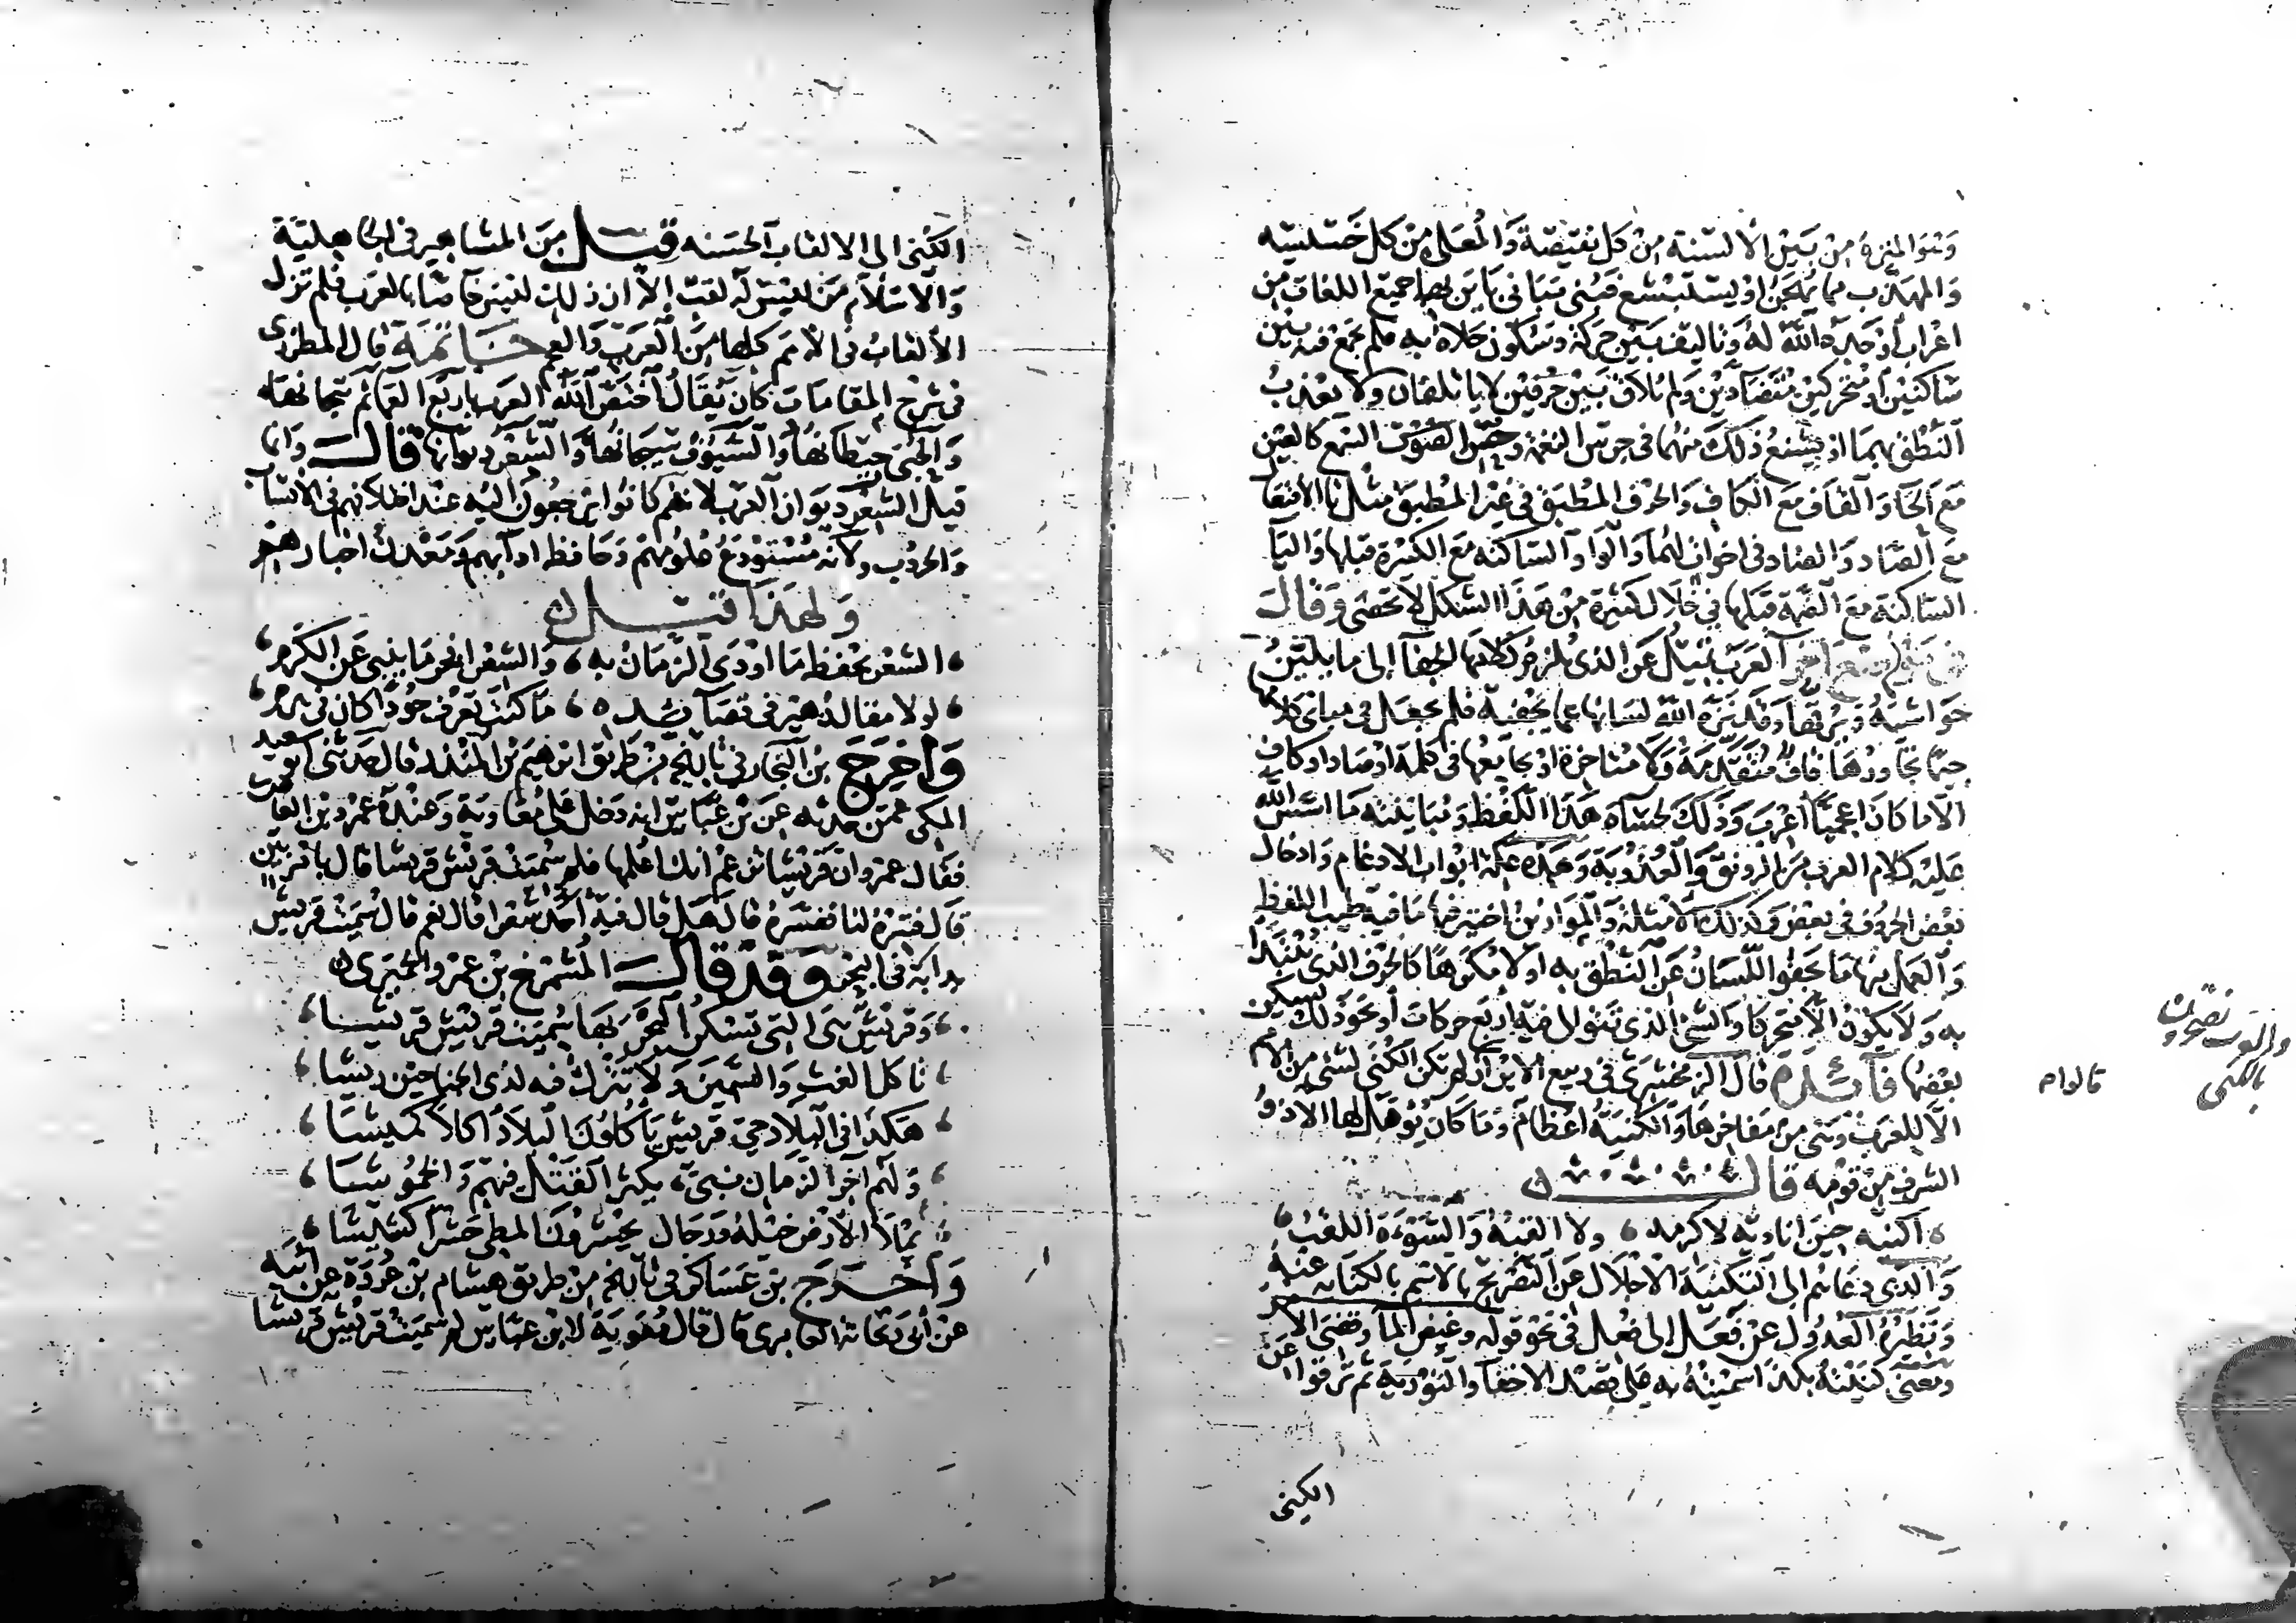 وهو المنزه من بين الالسنة من كل نقيصة والمعلى من كل خسيسه
والمهذب مما يهجن او يستبشع فبنى مبانى باين بها جميع اللغات من
اعراب اوجده الله له وتاليف بين حركة وسكون حلاه به فلم يجمع فيه بين
ساكنين او متحركين متضادين ولم يلاق بين حرفين لا ياتلفان ولا يعذب
النطق بهما او يشنع ذلك منهما في جرس النغمة وحس الصوت السمع كالعين
مع الحا والقاف مع الكاف والحرف المطبق في غير المطبق مثل تا الافتعال
مع الصاد والضاد في اخوات لهما والواو الساكنه مع الكسرة قبلها واليا
الساكنة مع الضمة قبلها في خلال كثيرة من هذا الشكل لا تحصى وقال
في موضع اخر العرب تميل عن الذي يلزم كلامها الجفا الى ما يلين
حواشيه ويرققها وقد نزه الله لسانها عما يجفيه فلم يجعل في مبانى كلامها
جيما تجاورها قاف متقدمة ولا متاخرة او تجامعها في كلمة او صاد او كاف
الا ما كان اعجميا اعرب وذلك لجسأة هذا اللفظ ومباينته ما اسس الله
عليه كلام العرب من الرونق والعذوبة وهذه علة ابواب الادغام وادخال
بعض الحروف في بعض وكذلك الامثلة والموازين اختير منها ما فيه طيب اللفظ
واهمل منها ما يجفو اللسان عن النطق به اولا مكرها كالحرف الذي يبتدا
به ولا يكون الا متحركا والشي الذي تتوالى فيه اربع حركات او نحو ذلك يسكن
بعضها فائدة قال الزمخشرى في ربيع الابرار لم تكن الكنى لشي من الامم
الا للعرب وهي من مفاخرها والكنية اعظام وما كان يوهل لها الا ذو
الشرف من قومه قال
اكنيه حين اناديه لاكرمه ولا القبه والسوءة اللقب
والذي دعاهم الى التكنية الاجلال عن التصريح بالاسم بالكناية عنه
ونظيره العدول عن فعل الى فعل في نحو قوله وغيض الما وقضى الامر
ومعنى كنيته بكذا سميته به على قصد الاخفا والتورية ثم ترقوا عن
الكنى
قالوا م
الكنى الى الالقاب الحسنه قيل من المشاهير في الجاهلية
والاسلام من ليس له لقب الا ان ذلك ليس خاصا بالعرب فلم تزل
الالقاب في الامم كلها من العرب والعجم خاتمة قال المطرزى
في شرح المقامات كان يقال اختص الله العرب باربع العمائم تيجانها
والحبى حيطانها والسيوف سيجانها والشعر ديوانها قال وانما
قيل الشعر ديوان العرب لانهم كانوا يرجعون اليه عند اختلافهم في الانساب
والحروب ولانه مستودع علومهم وحافظ ادابهم ومعدن اخبارهم
ولهذا قيل
الشعر يحفظ ما اودى الزمان به والشعر افخر ما ينبي عن الكرم
لولا مقال زهير في قصائده ما كنت تعرف جودا كان في هرم
واخرج بن النجار في تاريخه من طريق ابرهيم بن المنذر قال حدثنى ابو سعيد
المكى عمن حدثه عن بن عباس انه دخل على معاوية وعنده عمرو بن العاصى
فقال عمرو ان قريشا تزعم انك اعلمها فلم سميت قريش قريشا قال بامر بين
قال فسره لنا ففسره قال هل قال فيه احد شعرا قال نعم قال سميت قريش
بدابة في البحر وقد قال المشمرخ بن عمرو الحميرى
وقريش هى التى تسكن البحر بها سميت قريش قريشا
تاكل الغث والسمين ولا تترك فيه لذى الجناحين ريشا
هكذا في البلاد حي قريش ياكلون البلاد اكلا كميشا
ولهم اخر الزمان نبى يكثر القتل فيهم والخموشا
يملا الارض خيله ورجال يحشرون المطي حشرا كشيشا
واخرج بن عساكر في تاريخه من طريق هشام بن عروة عن ابيه
عن ابى ريحانة العامرى قال قال معوية لابن عباس لم سميت قريش قريشا